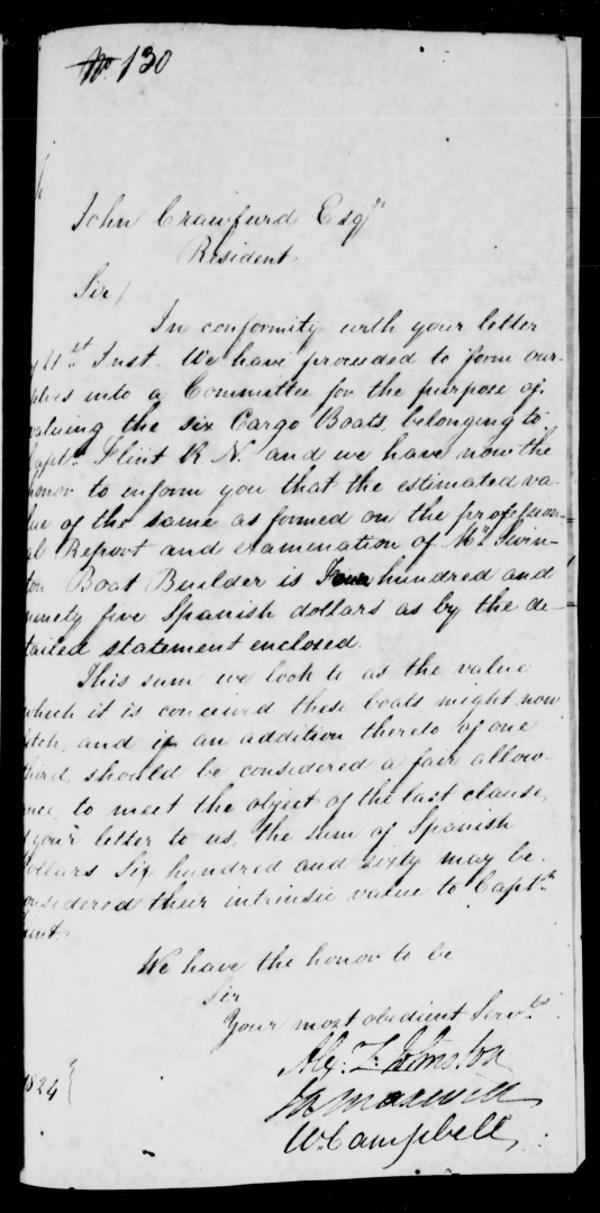 No. 130
John Crawfurd Esqr
Resident
Sir/
In conformity with your letter
of 21st Inst. We have proceeded to form our-
selves into a Committee for the purpose of
valuing the six Cargo Boats, belonging to
Captn. Flint R. N. and we have now the
honor to inform you that the estimated va-
lue of the same as formed on the profession-
al Report and examination of Mr. Swin-
ton Boat Builder is Four hundred and
ninety five Spanish dollars as by the de-
tailed statement enclosed.
This sum we look to as the value
which it is conceived these boats might now
fetch, and if an addition thereto of one
third, should be considered a fair allow-
ance, to meet the object of the last clause,
of your letter to us, the sum of Spanish
Dollars Six hundred and sixty may be
considered their intrinsic value to Captn.
Flint.
We have the honor to be
Sir
Your most obedient Servts.
Alex. L. Johnston
Maxwell
1824
W. Campbell